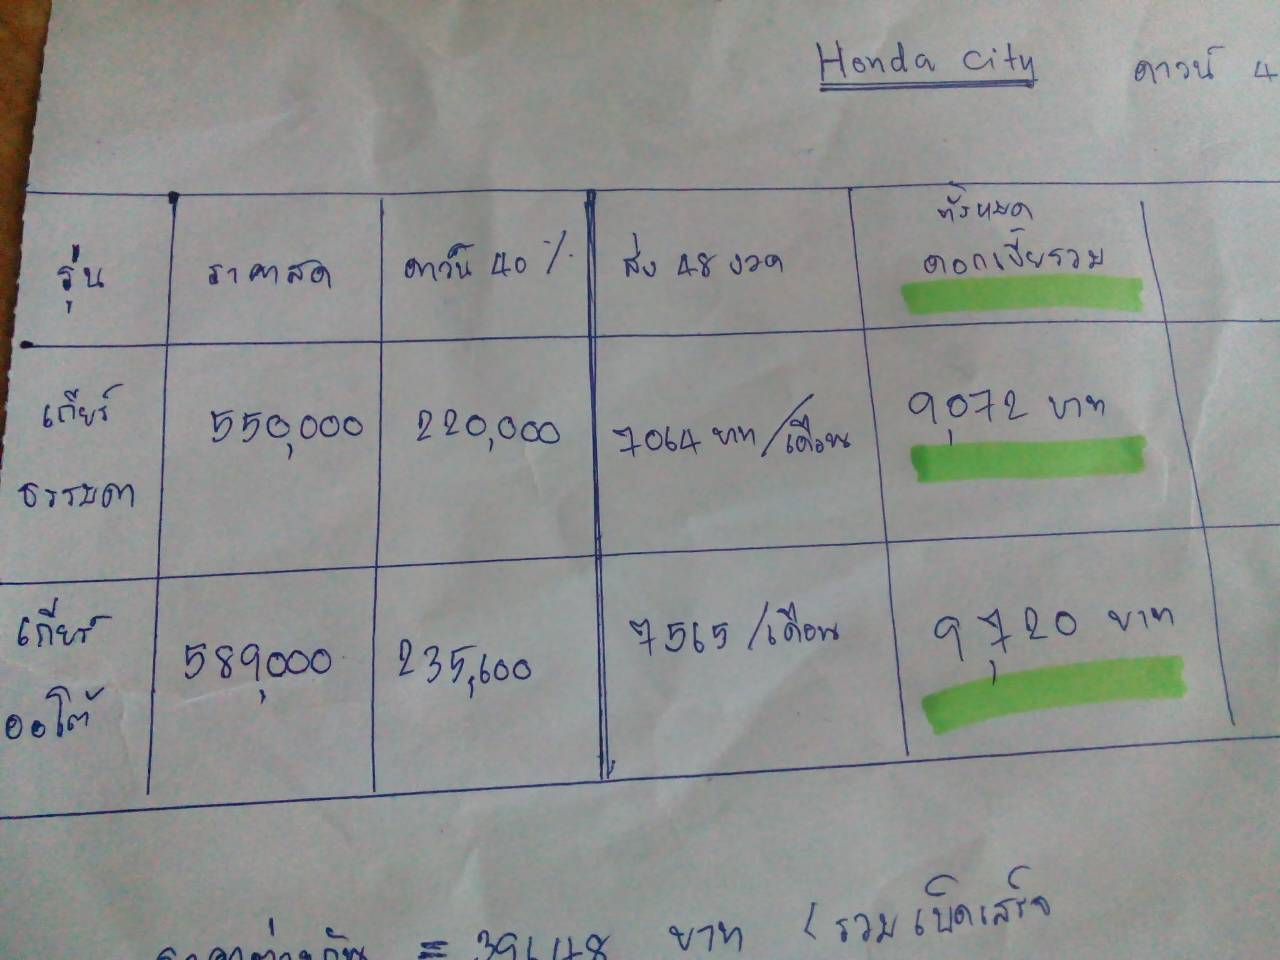 Honda City ดาวน์ 4
รุ่น ราคาสด ดาว์น 40 % ส่ง 48 งวด ทั้งหมด
ดอกเบี้ยรวม
เกียร์ 550,000 220,000 7064 บาท/เดือน 9,072 บาท
ธรรมดา
เกียร์ 589,000 235,600 7565 /เดือน 9,720 บาท
ออโต้
ราคาต่างกัน = 39,648 บาท ( รวมเบ็ดเสร็จ